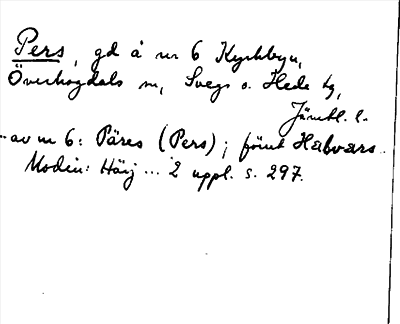 Pers, gd å nr 6 Kyrkbyn,
Överhogdals sn, Svegs o. Hede tg,
Jämtl. l.
- av nr 6: Päres (Pers); förut Halvars.
Modin: Härj ... 2 uppl. s. 297.